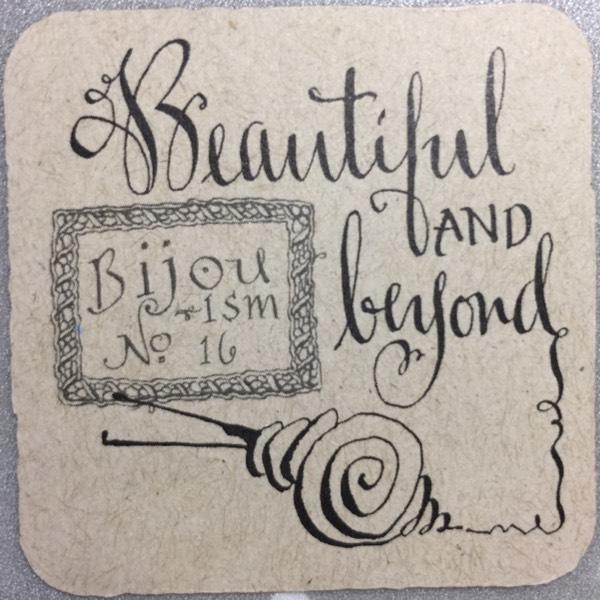 Beautiful
AND
beyond
Bijou
-ism
No 16